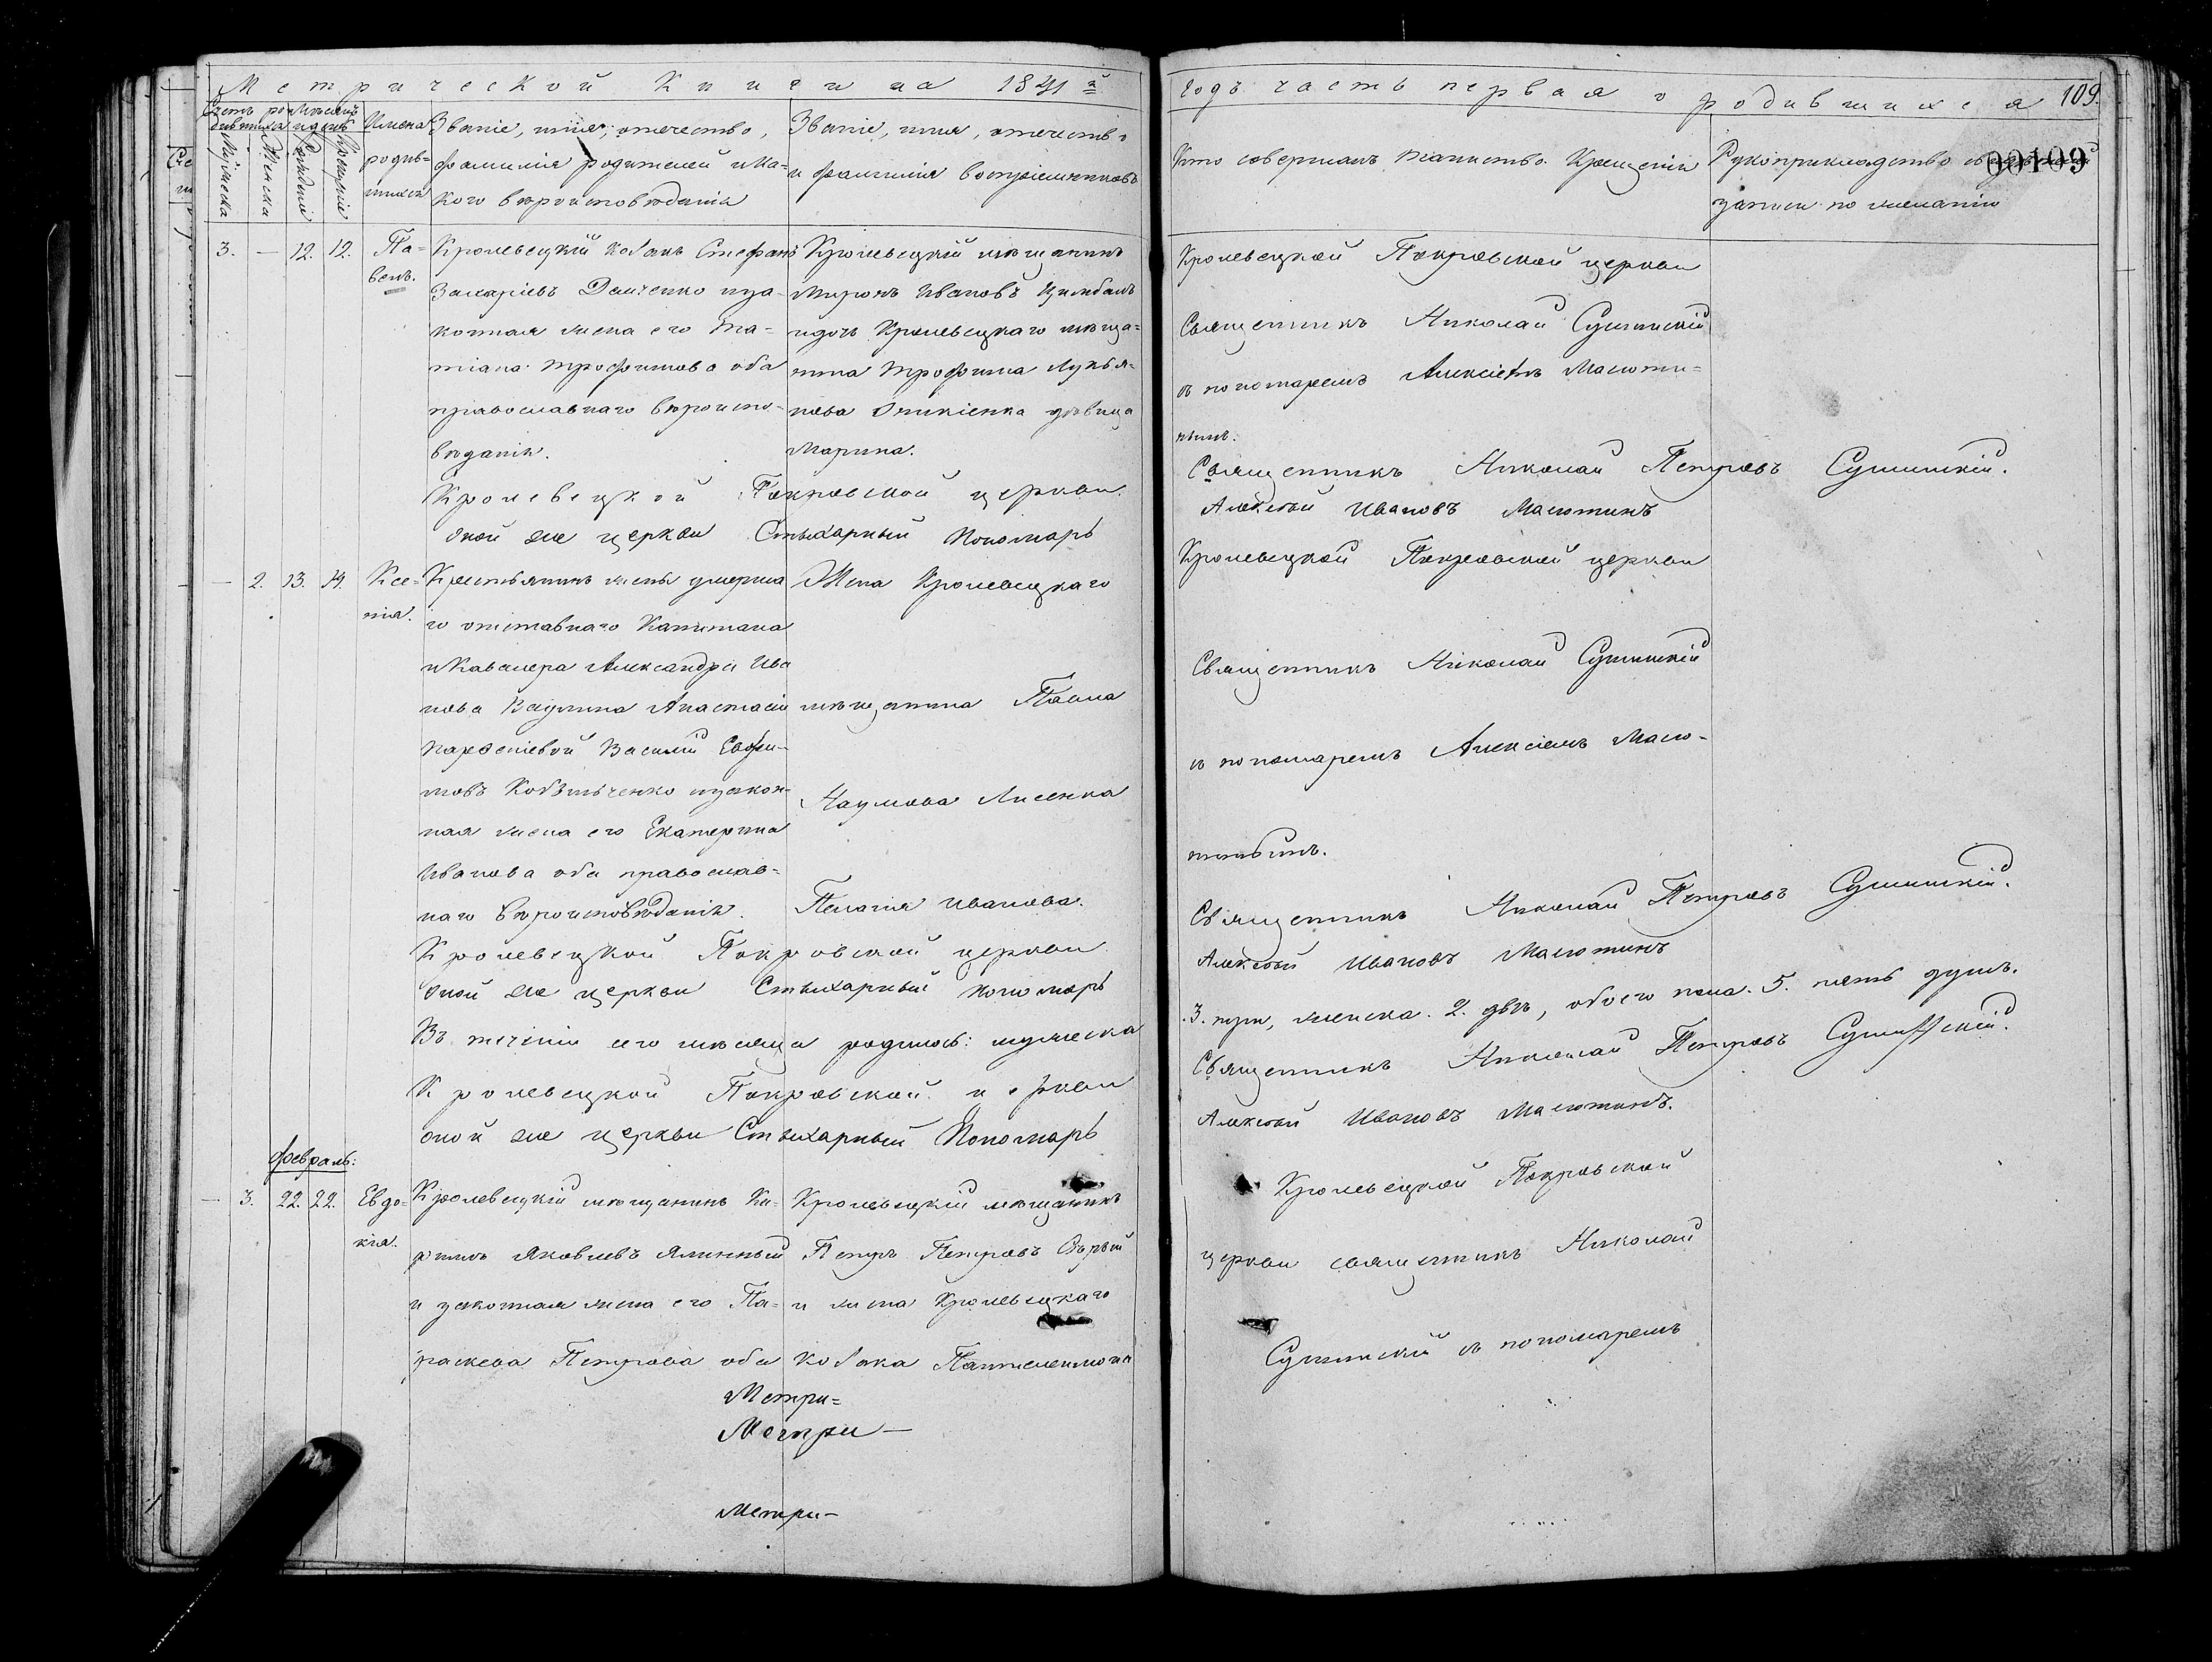 Метрической Книги на 1841й
Годъ часть первая о родившихся 109
00109
Счетъ ро-
дившихся
Мужеска
Женска
Мѣсяцъ
и день
Рожденія
Крещенія
Имена
родив-
шихся
Званіе, имя, отечество,
фамилія родителей и ка-
кого вѣроисповѣданія
Званіе, имя, отечество
и фамилія воспріемниковъ
Кто совершалъ таинство Крещенія
Рукоприкладство
записи по желанію
3. — 12. 12.
Па-
велъ.
Кролевецкій козакъ Стефанъ
Захаріевъ Демченко и за-
конная жена его Та-
тіана Трофимова оба
православнаго вѣроиспо-
вѣданія.
Кролевецкій мѣщанинъ
Миронъ Ивановъ Цимбалъ
и дочь Кролевецкаго мѣща-
нина Трофима Лукья-
нова Оникіенка дѣвица
Марина.
Кролевецкой Покровской церкви
Священникъ Николай Сушинскій
съ пономаремъ Алексіемъ Малюти-
нымъ.
Кролевецкой Покровской церкви Священникъ Николай Петровъ Сушинскій.
Оной же церкви Стихарный Пономарь Алексѣй Ивановъ Малютинъ
— 2. 13. 14.
Ксе-
нія.
Крестьянинъ жены умерша
го отставнаго Капитана
и Кавалера Александра Ива
нова Анастасіи
Парфеніевой Василій Евфи-
мовъ и закон-
ная жена его Екатерина
Иванова оба православ-
наго вѣроисповѣданія.
Жена Кролевецкаго
мѣщанина Павла
Наумова Лисенка
Пелагія Иванова.
Кролевецкой Покровской церкви
Священникъ Николай Сушинскій
съ пономаремъ Алексіемъ Малю-
тинымъ.
Кролевецкой Покровской церкви Священникъ Николай Петровъ Сушинскій.
Оной же церкви Стихарный Пономарь Алексѣй Ивановъ Малютинъ
Въ теченіи сего мѣсяца родилось: мужеска .3. три, женска. 2. двѣ, обоего пола. 5. пять душъ.
Кролевецкой Покровской церкви Священникъ Николай Петровъ Сушинскій.
Оной же церкви Стихарный Пономарь Алексѣй Ивановъ Малютинъ.
Февраль:
— 3. 22. 22.
Евдо-
кія.
Кролевецкій мѣщанинъ Ки-
рилъ Яковлевъ
и законная жена его Па-
раскева Петрова оба
Кролевецкій мѣщанинъ
Петръ Петровъ
и жена Кролевецкаго
козака Пантелеимона
Кролевецкой Покровской
церкви священникъ Николай
Сушинскій съ пономаремъ
Метри=
Метри—
Метри—